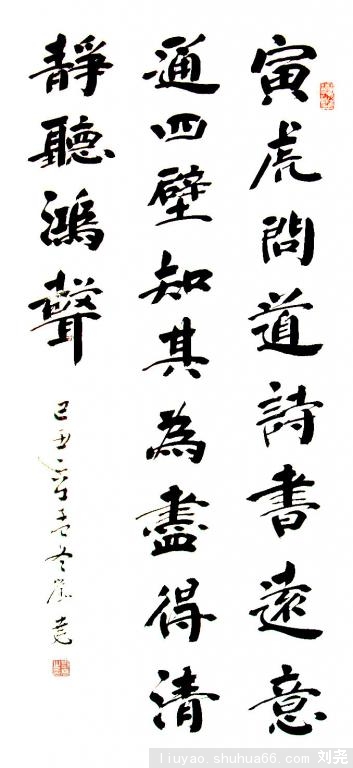 寅虎問道詩書遠意
通四壁知其為盡得清
靜聽鴻聲
己丑年孟冬
liuyao.shuhua66.com 刘尧